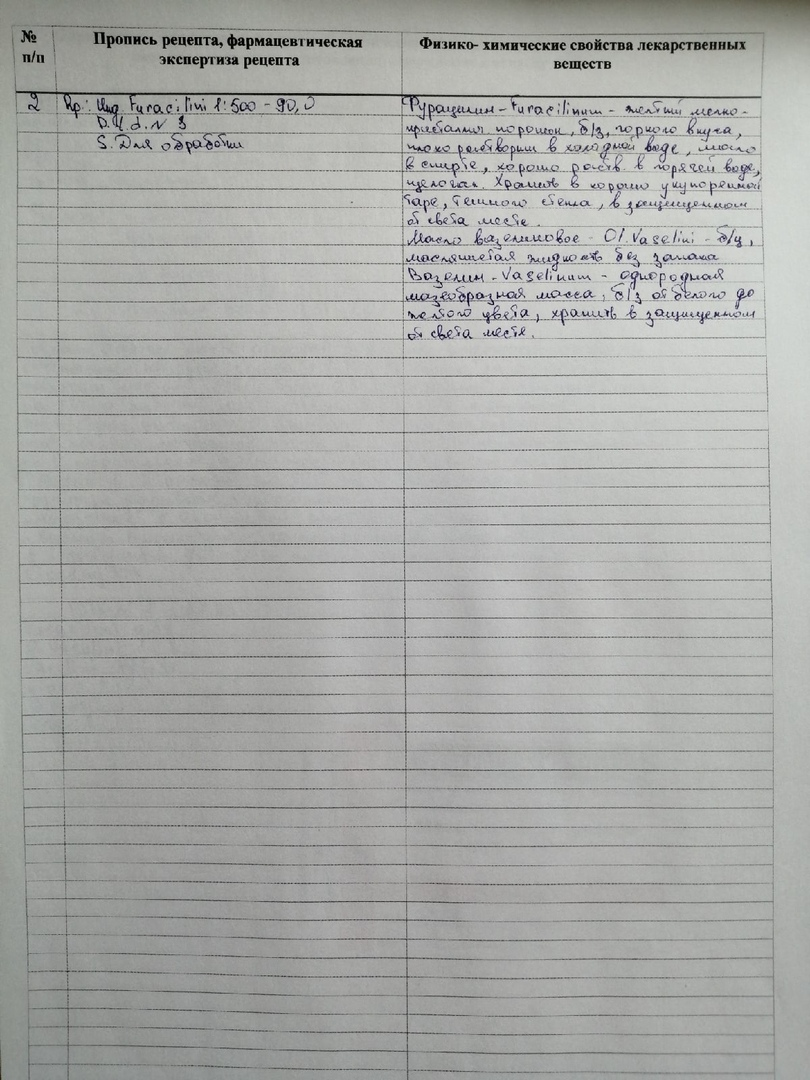 № п/п
Пропись рецепта, фармацевтическая
экспертиза рецепта
Физико- химические свойства лекарственных
веществ
2
Rp: Ung. Furacilini 1:500 - 90,0
D.t.d. N 3
S. Для обработки
Фурацилин - Furacilinum - желтый мелко-
кристалл. порошок, б/з, горького вкуса,
плохо растворим в холодной воде, мало
в спирте, хорошо раств. в горячей воде,
щелочах. Хранить в хорошо укупоренной
таре, темного стекла, в защищенном
от света месте.
Масло вазелиновое - Ol. Vaselini - б/ц,
маслянистая жидкость без запаха
Вазелин - Vaselinum - однородная
мазеобразная масса, б/з от белого до
желтого цвета, хранить в защищенном
от света месте.